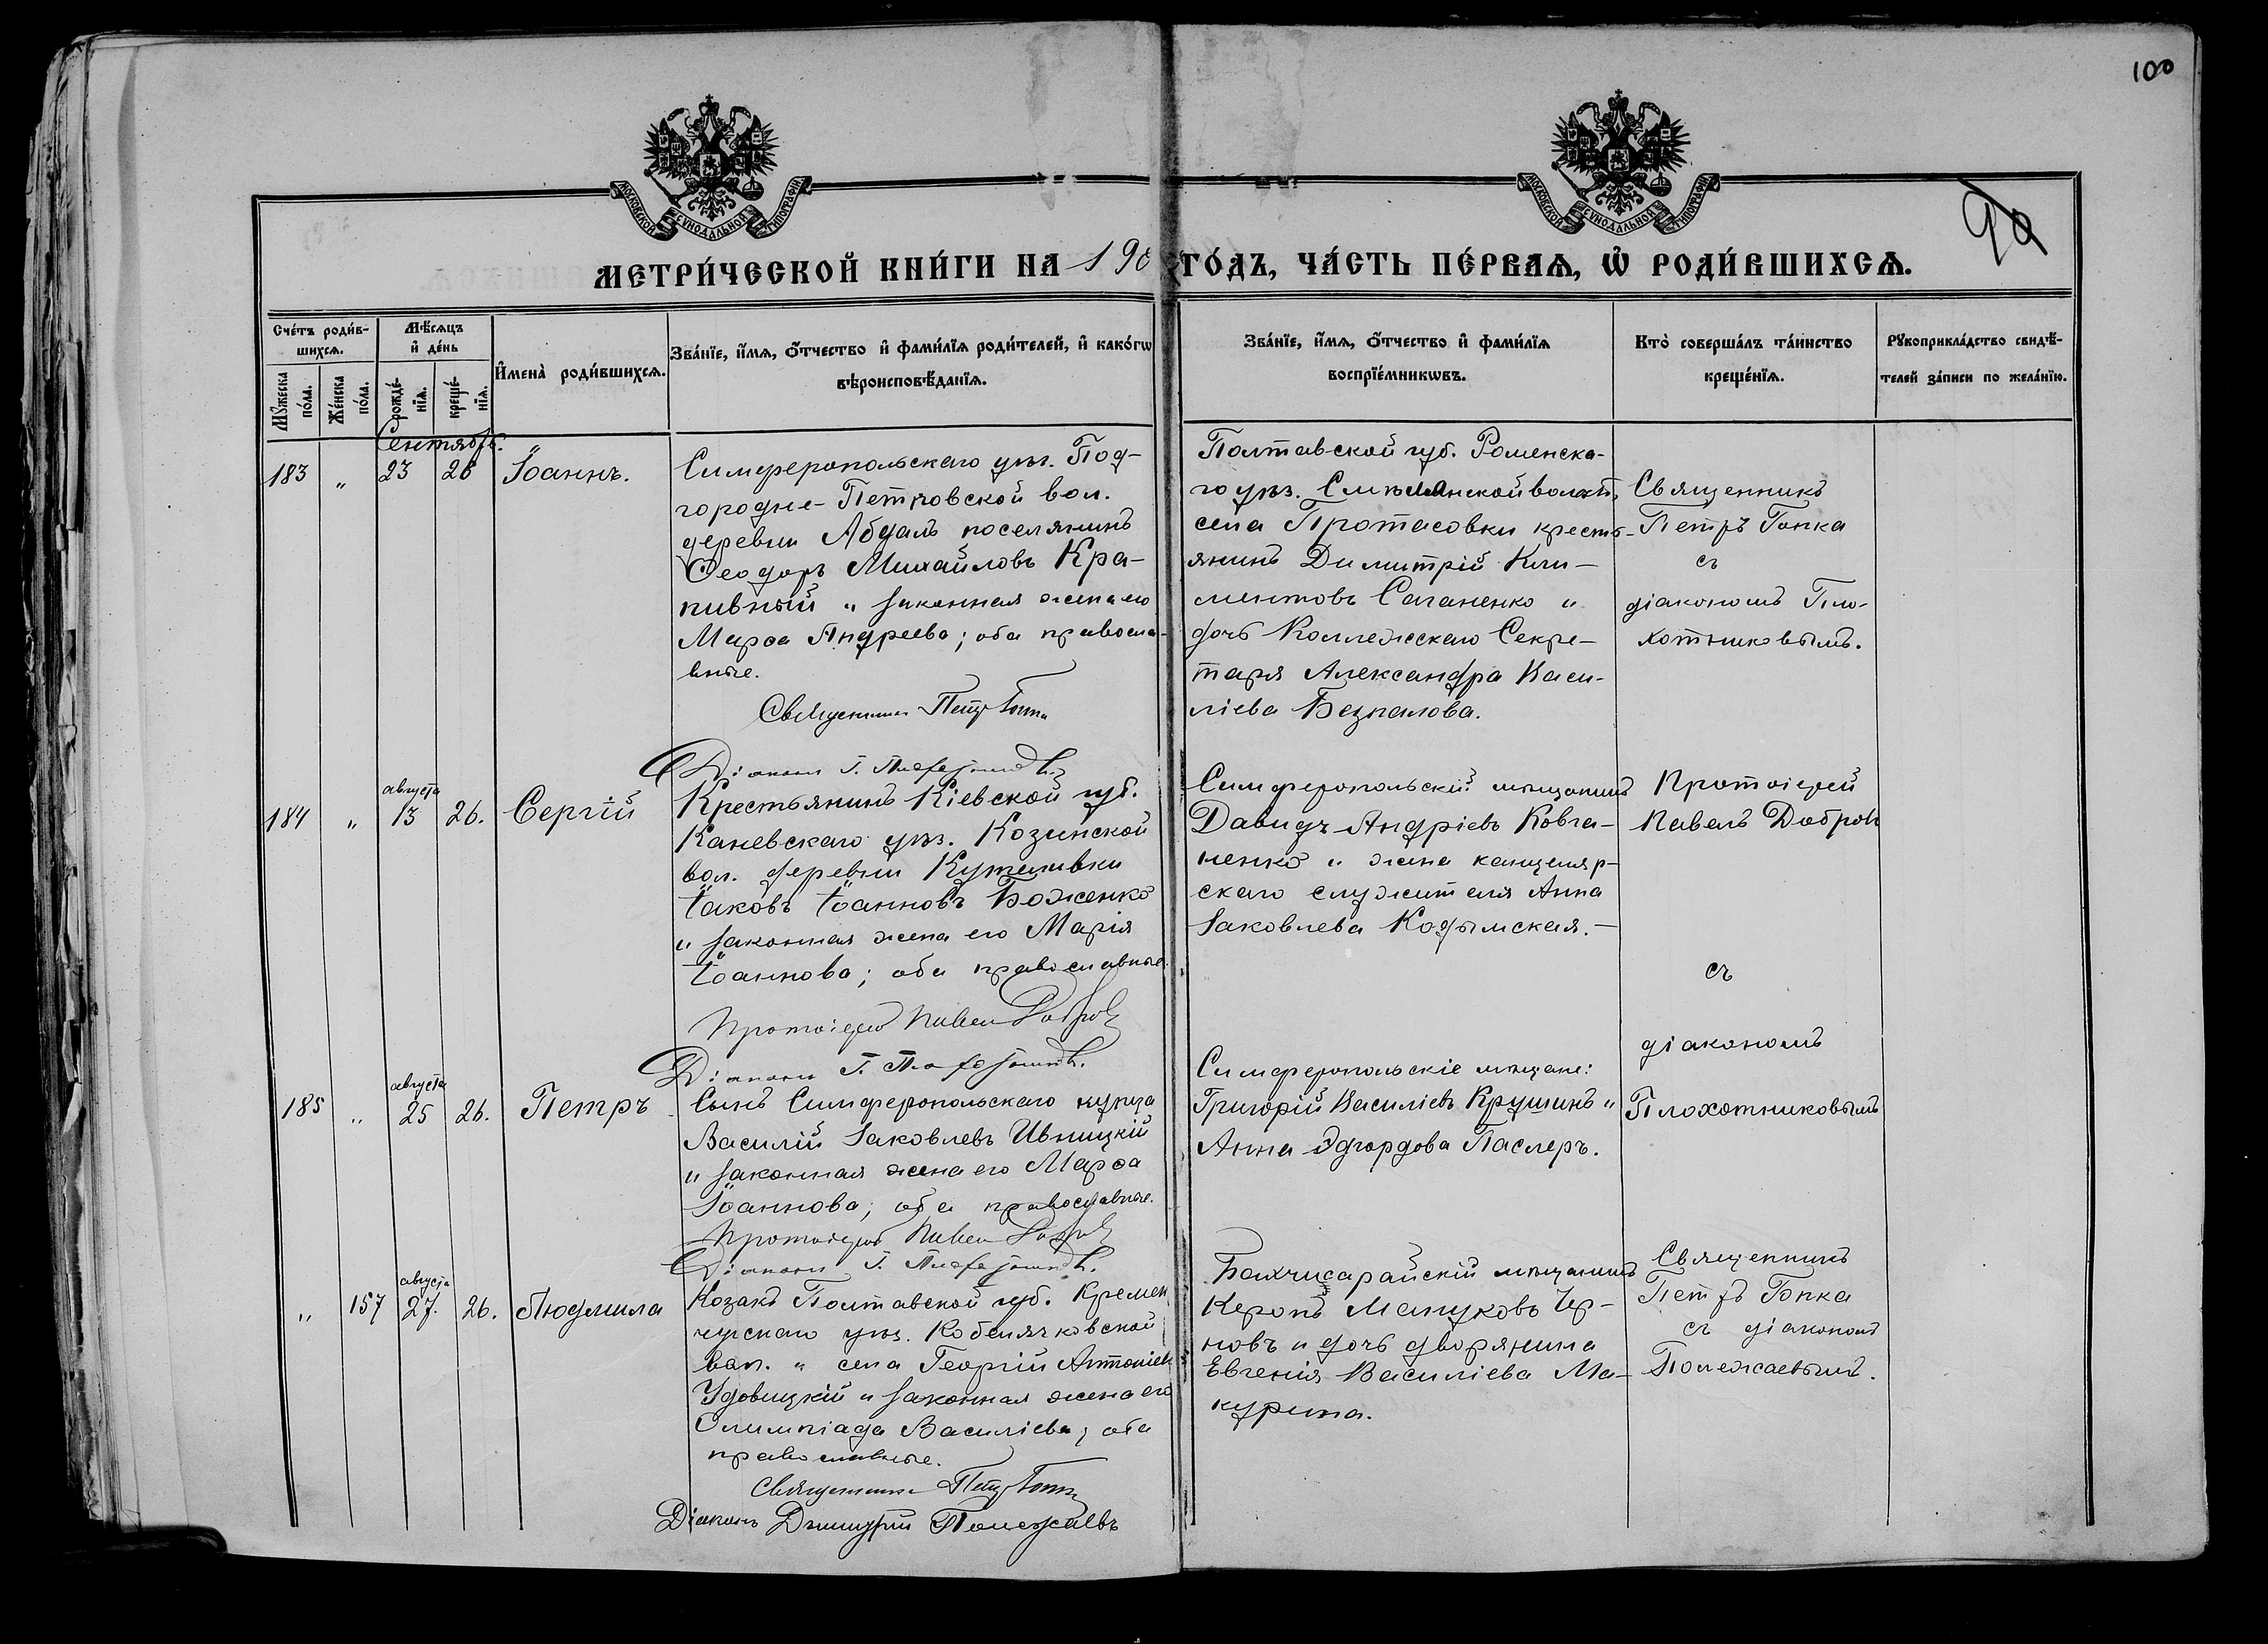 100
МОСКОВСКОЙ СѴНОДАЛЬНОЙ ТИПОГРАФІИ
МОСКОВСКОЙ СѴНОДАЛЬНОЙ ТИПОГРАФІИ
90
МЕТРИ́ЧЕСКОЙ КНИ́ГИ НА 190 ГО́ДЪ, ЧА́СТЬ ПЕ́РВАѦ, Ѡ РОДИ́ВШИХСѦ.
Сче́тъ роди́в-
шихсѧ.
Мꙋжеска по́ла.
Же́нска по́ла.
Мѣ́сѧцъ
и де́нь
рожде́-
нїѧ.
креще́-
нїѧ.
И҆мена̀ роди́вшихсѧ.
Зва́нїе, и҆́мѧ, ѻ҆́тчество и҆ фами́лїѧ роди́телей, и҆ како́гѡ
вѣроисповѣ́данїѧ.
Зва́нїе, и҆́мѧ, ѻ҆́тчество и҆ фами́лїѧ
воспрїе́мникѡвъ.
Кто̀ соверша́лъ та́инство
креще́нїѧ.
Рꙋкоприкла́дство свидѣ́-
телей за́писи по жела́нїю.
Сентябрь.
183 „ 23 26 Іоаннъ.
Симферопольскаго уѣз. Под-
городне-Петровской вол.
деревни Абдалъ поселянинъ
Ѳеодоръ Михайловъ Кра-
пивный и законная жена его
Марѳа Андреева; оба правосла-
вные.
Священникъ Петръ Гопка
Діаконъ Г. Плохотниковъ
Полтавской губ. Роменска-
го уѣз. Смѣлянской волост.
села Протасовки кресть-
янинъ Димитрій Кли-
ментовъ Саганенко и
дочь Коллежскаго Секре-
таря Александра Васи-
ліева Безпалова.
Священникъ
Петръ Гопка
съ
діакономъ Пло-
хотниковымъ.
августа
184 „ 13 26. Сергій
Крестьянинъ Кіевской губ.
Каневскаго уѣз. Козинской
вол. деревни
Іаковъ Іоанновъ Боженко
и законная жена его Марія
Іоаннова; оба православные.
Протоіерей Павелъ Добровъ
Діаконъ Г. Плохотниковъ.
Симферопольскій мѣщанинъ
Давидъ Андріевъ Ковга-
ненко и жена канцеляр-
скаго служителя Анна
Іаковлева Кодымская.—
Протоіерей
Павелъ Добровъ
съ
діакономъ
Плохотниковымъ
августа
185 „ 25 26. Петръ
Сынъ Симферопольскаго купца
Василій Іаковлевъ Ивницкій
и законная жена его Марѳа
Іоаннова; оба православные.
Протоіерей Павелъ Добровъ
Діаконъ Г. Плохотниковъ.
Симферопольскіе мѣщане:
Григорій Василіевъ Крушинъ и
Анна Эдгордова Паслеръ.
августа
„ 157 27. 26. Людмила
Козакъ Полтавской губ. Кремен
чугскаго уѣз. Кобелячковской
вол. и села Георгій Антоніевъ
Удовицкій и законная жена его
Олимпіада Василіева; оба
православные.
Священникъ Петръ Гопка
Діаконъ Димитрій Полежаевъ
Бахчисарайскій мѣщанинъ
Керопъ Мануковъ Чер-
новъ и дочь дворянина
Евгенія Василіева Ма-
курина.
Священникъ
Петръ Гопка
съ діакономъ
Полежаевымъ.